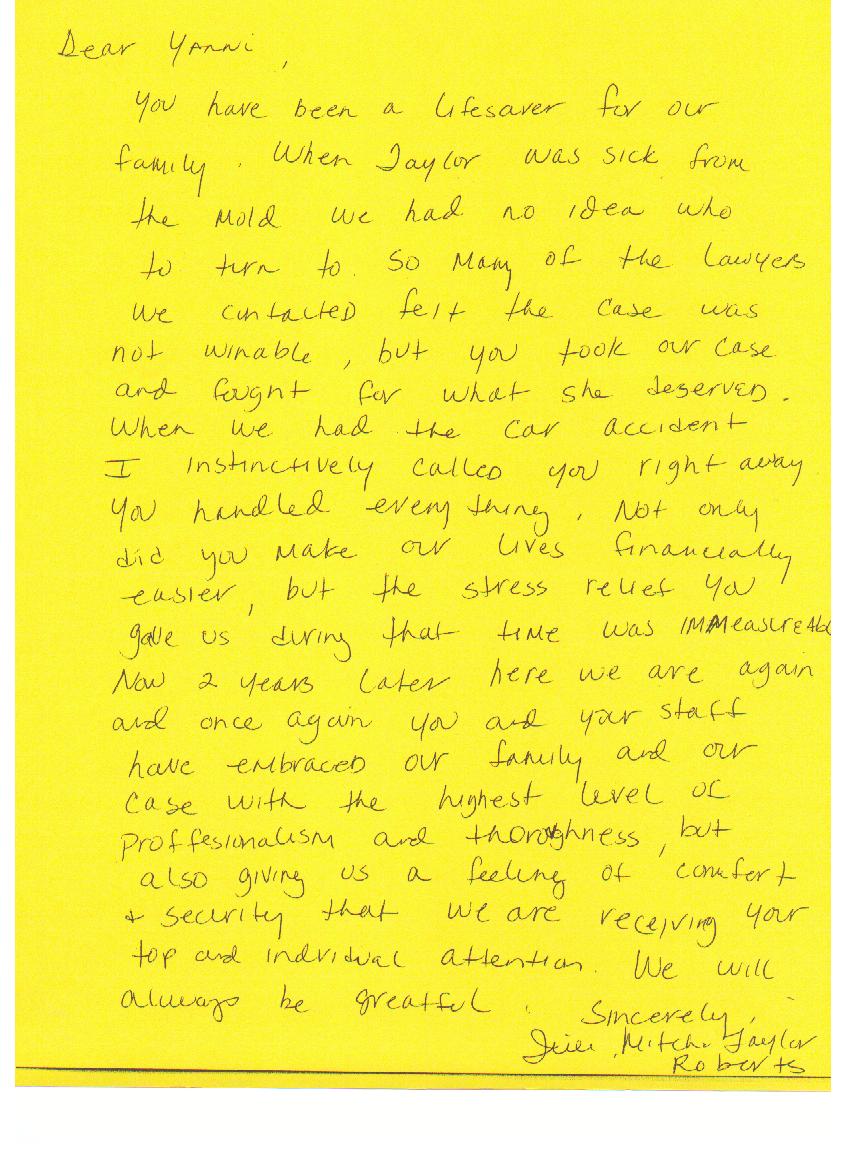 Dear Yanni,
You have been a lifesaver for our
family. When Taylor was sick from
the mold we had no idea who
to turn to. So many of the lawyers
we contacted felt the case was
not winable, but you took our case
and fought for what she deserved.
When we had the car accident
I instinctively called you right away
You handled everything. Not only
did you make our lives financially
easier, but the stress relief you
gave us during that time was immeasureabl
Now 2 years later here we are again
and once again you and your staff
have embraced our family and our
case with the highest level of
proffesionalism and thoroghness, but
also giving us a feeling of comfort
+ security that we are receiving your
top and individual attention. We will
always be greatful.
Sincerely,
Mitch. Taylor
Roberts